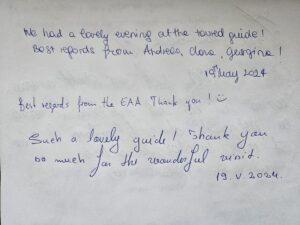 We had a lovely evening at the toured guide!
Best regards from Andreea, Oana, Georgina!
19th May 2024
Best regards from the EAA Thank you! ☺
Such a lovely guide! Thank you
so much for the wonderful visit.
19. V. 2024.